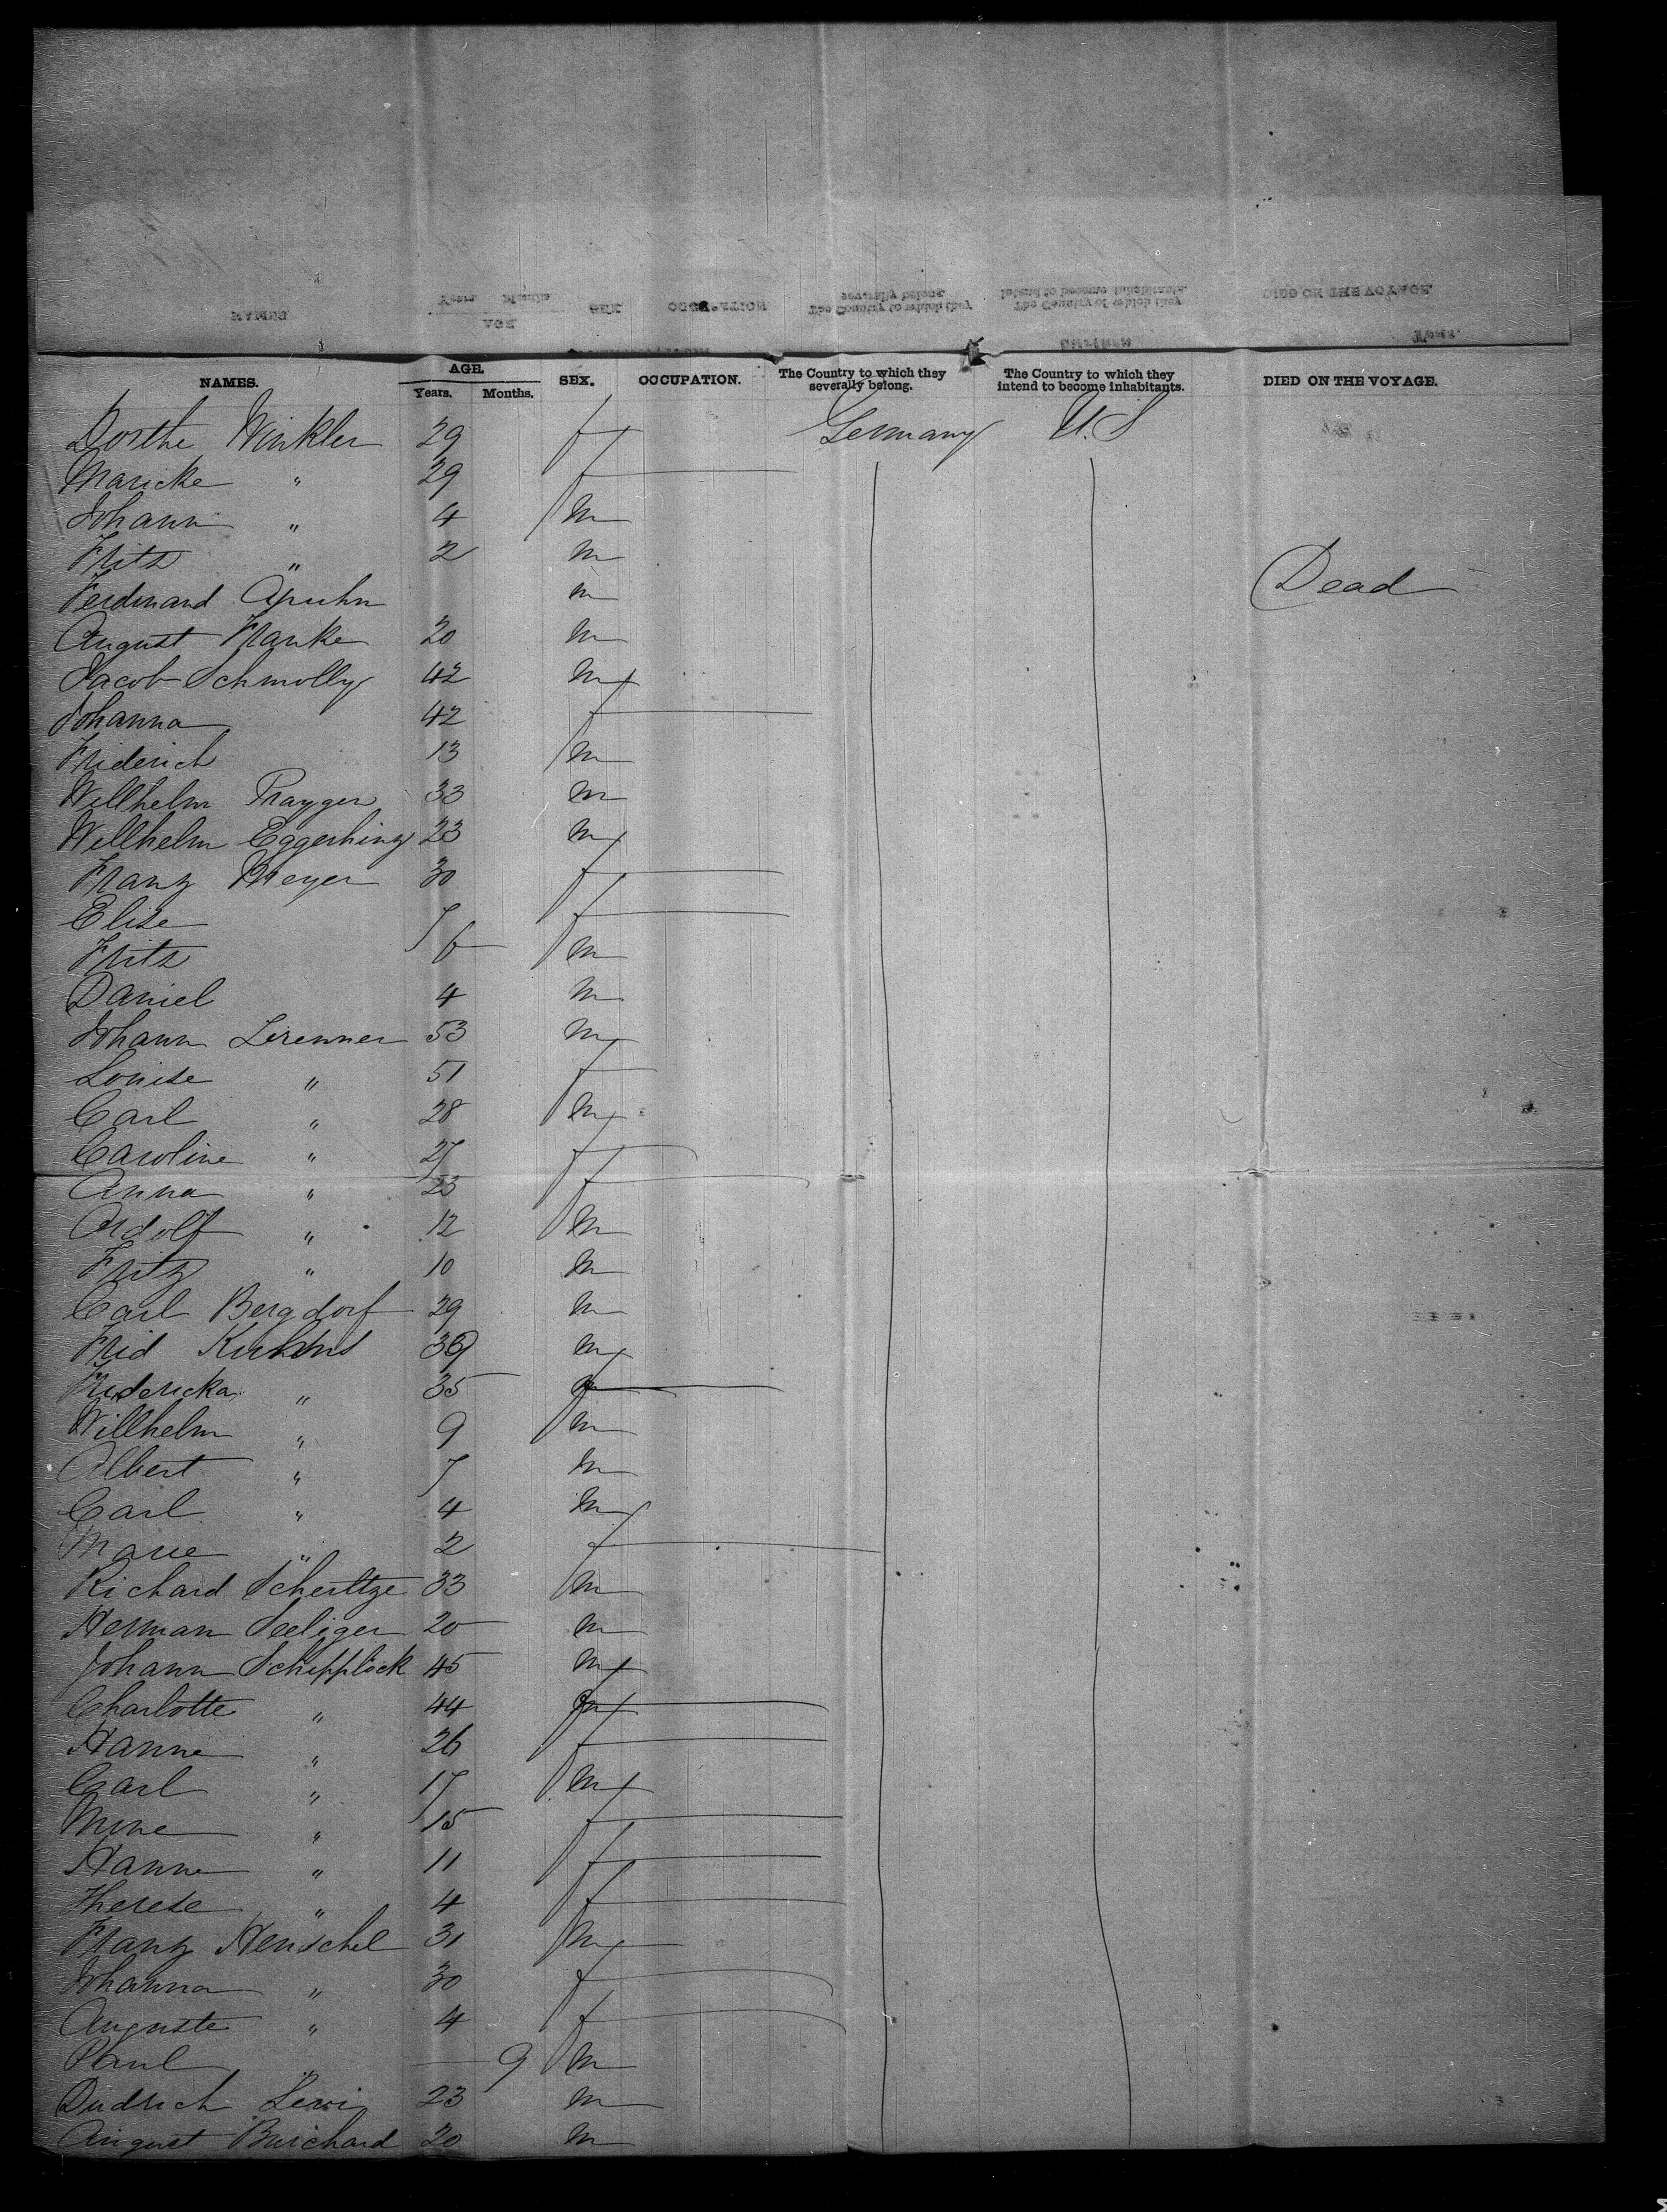 NAMES. AGE. Years. Months. SEX. OCCUPATION. The Country to which they severally belong. The Country to which they intend to become inhabitants. DIED ON THE VOYAGE.
Dorthe Winkler 29 f Germany U.S
Maricke " 29 f
Johann " 4 m
Fritz " 2 m
Ferdinand Apuhn m Dead
August Franke 20 m
Jacob Schmolly 42 m
Johanna 42 f
Friderich 13 m
Willhelm Prayger 33 m
Willhelm Eggerhing 23 m
Franz Meyer 30 f
Elise 7 f
Fritz 6 m
Daniel 4 m
Johann Lerenner 53 m
Louise " 51 f
Carl " 28 m
Caroline " 27 f
Anna " 23 f
Adolf " 12 m
Fritz " 10 m
Carl Bergdorf 29 m
Frid 39 m
Fridericka " 35 f
Willhelm " 9 m
Albert " 7 m
Carl " 4 m
Marie " 2 f
Richard Scheltze 33 m
Herman Seeliger 20 m
Johann Schipplock 45 m
Charlotte " 44 f
Hanne " 26 f
Carl " 17 m
Mine " 15 f
Hanne " 11 f
Therese " 4 f
Franz Henschel 31 m
Johanna " 30 f
Auguste " 4 f
Paul " — 9 m
Didrich Lewin 23 m
August Burchard 20 m